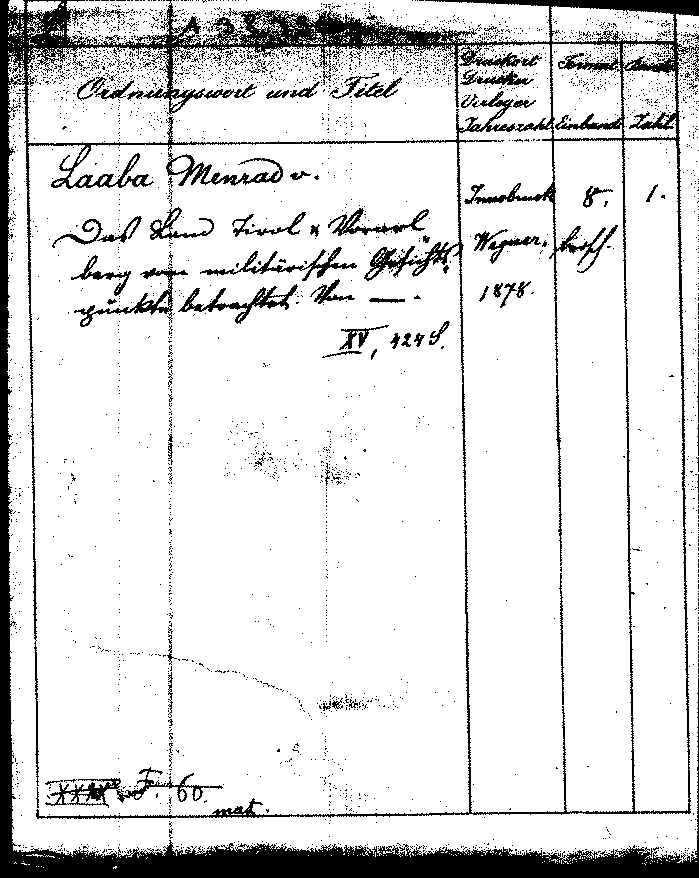 Ordnungswort und Titel
Druckort
Drucker
Verleger
Jahreszahl
Format
Einband
Bände
Zahl
Laaba Menrad v.
Das Land Tirol & Vorarl
berg vom militärischen Gesichts-
punkte betrachtet. Von — .
XV, 424 S.
Innsbruck
Wagner,
1878.
8°.
brosch.
1.
F. 60.
mat.